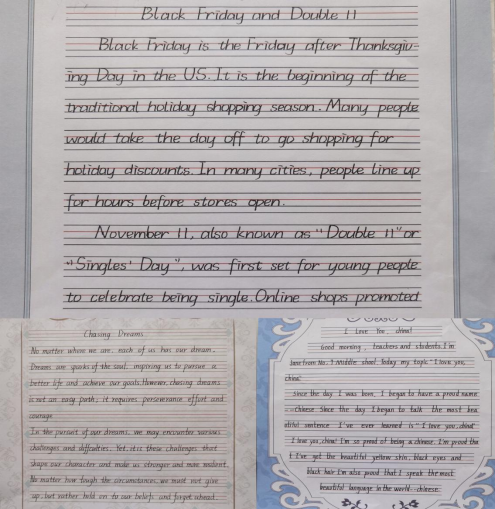 Black Friday and Double 11
Black Friday is the Friday after Thanksgiv-
ing Day in the US. It is the beginning of the
traditional holiday shopping season. Many people
would take the day off to go shopping for
holiday discounts. In many cities, people line up
for hours before stores open.
November 11, also known as "Double 11" or
"Singles' Day", was first set for young people
to celebrate being single. Online shops promoted
Chasing Dreams
No matter where we are, each of us has our dream.
Dreams are goals of the soul, inspiring us to pursue a
better life and achieve our goals. However, chasing dreams
is not an easy path; it requires perseverance effort and
courage
In the pursuit of our dreams, we may encounter various
challenges and difficulties. Yet, it's these challenges that
shape our character and make us stronger and more resilient.
No matter how tough the circumstances, we must not give
up, but rather hold on to our beliefs and forget ahead.
I Love You, china!
Good morning, teachers and students. I'm
Jane from No. 9 Middle school. Today, my topic "I love you,
china!
Since the day I was born, I began to have a proud name
Chinese Since the day I began to talk the most bea
utiful sentence I've ever learned is "I love you, china!
I love you, china! I'm so proud of being a chinese. I'm proud tha
t I've got the beautiful yellow skin, black eyes and
black hair I'm also proud that I speak the most
beautiful language in the world--chinese.